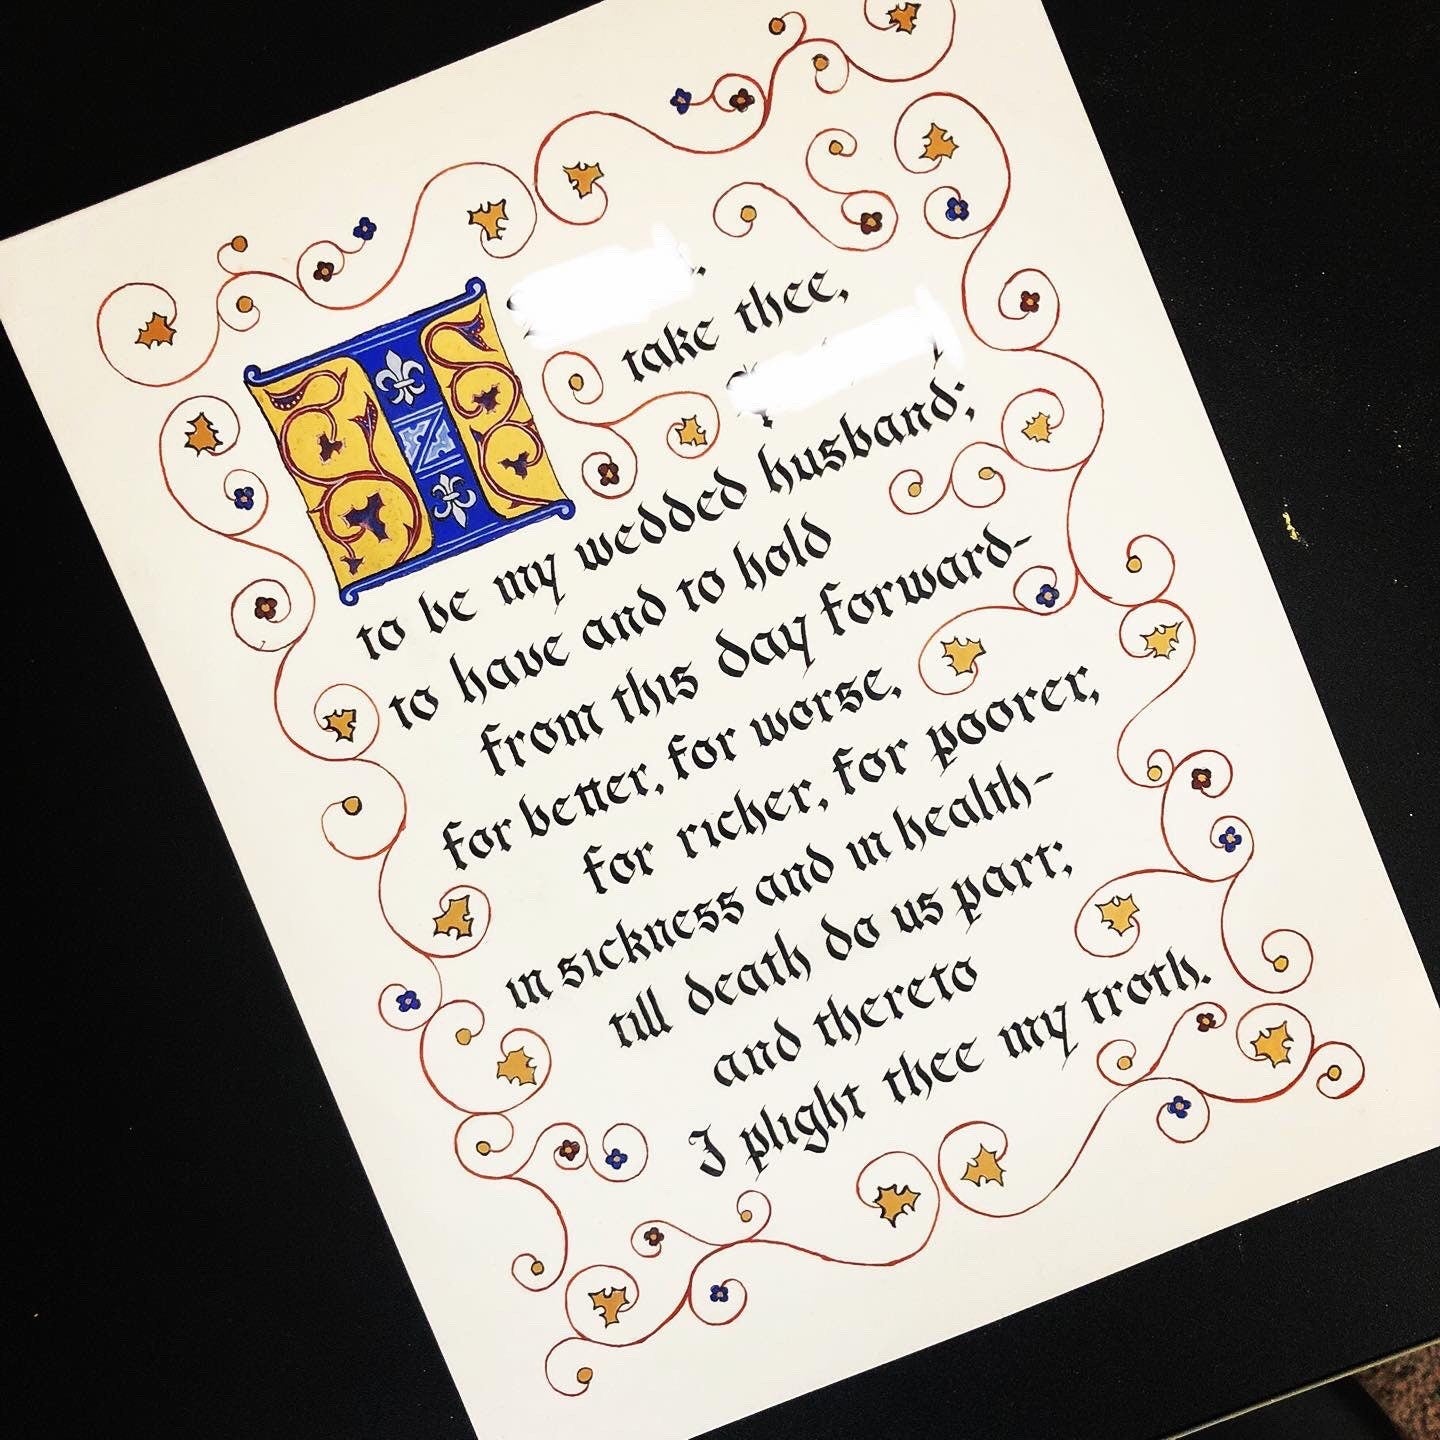 I
take thee,
to be my wedded husband;
to have and to hold
from this day forward-
for better, for worse,
for richer, for poorer,
in sickness and in health-
till death do us part;
and thereto
I plight thee my troth.